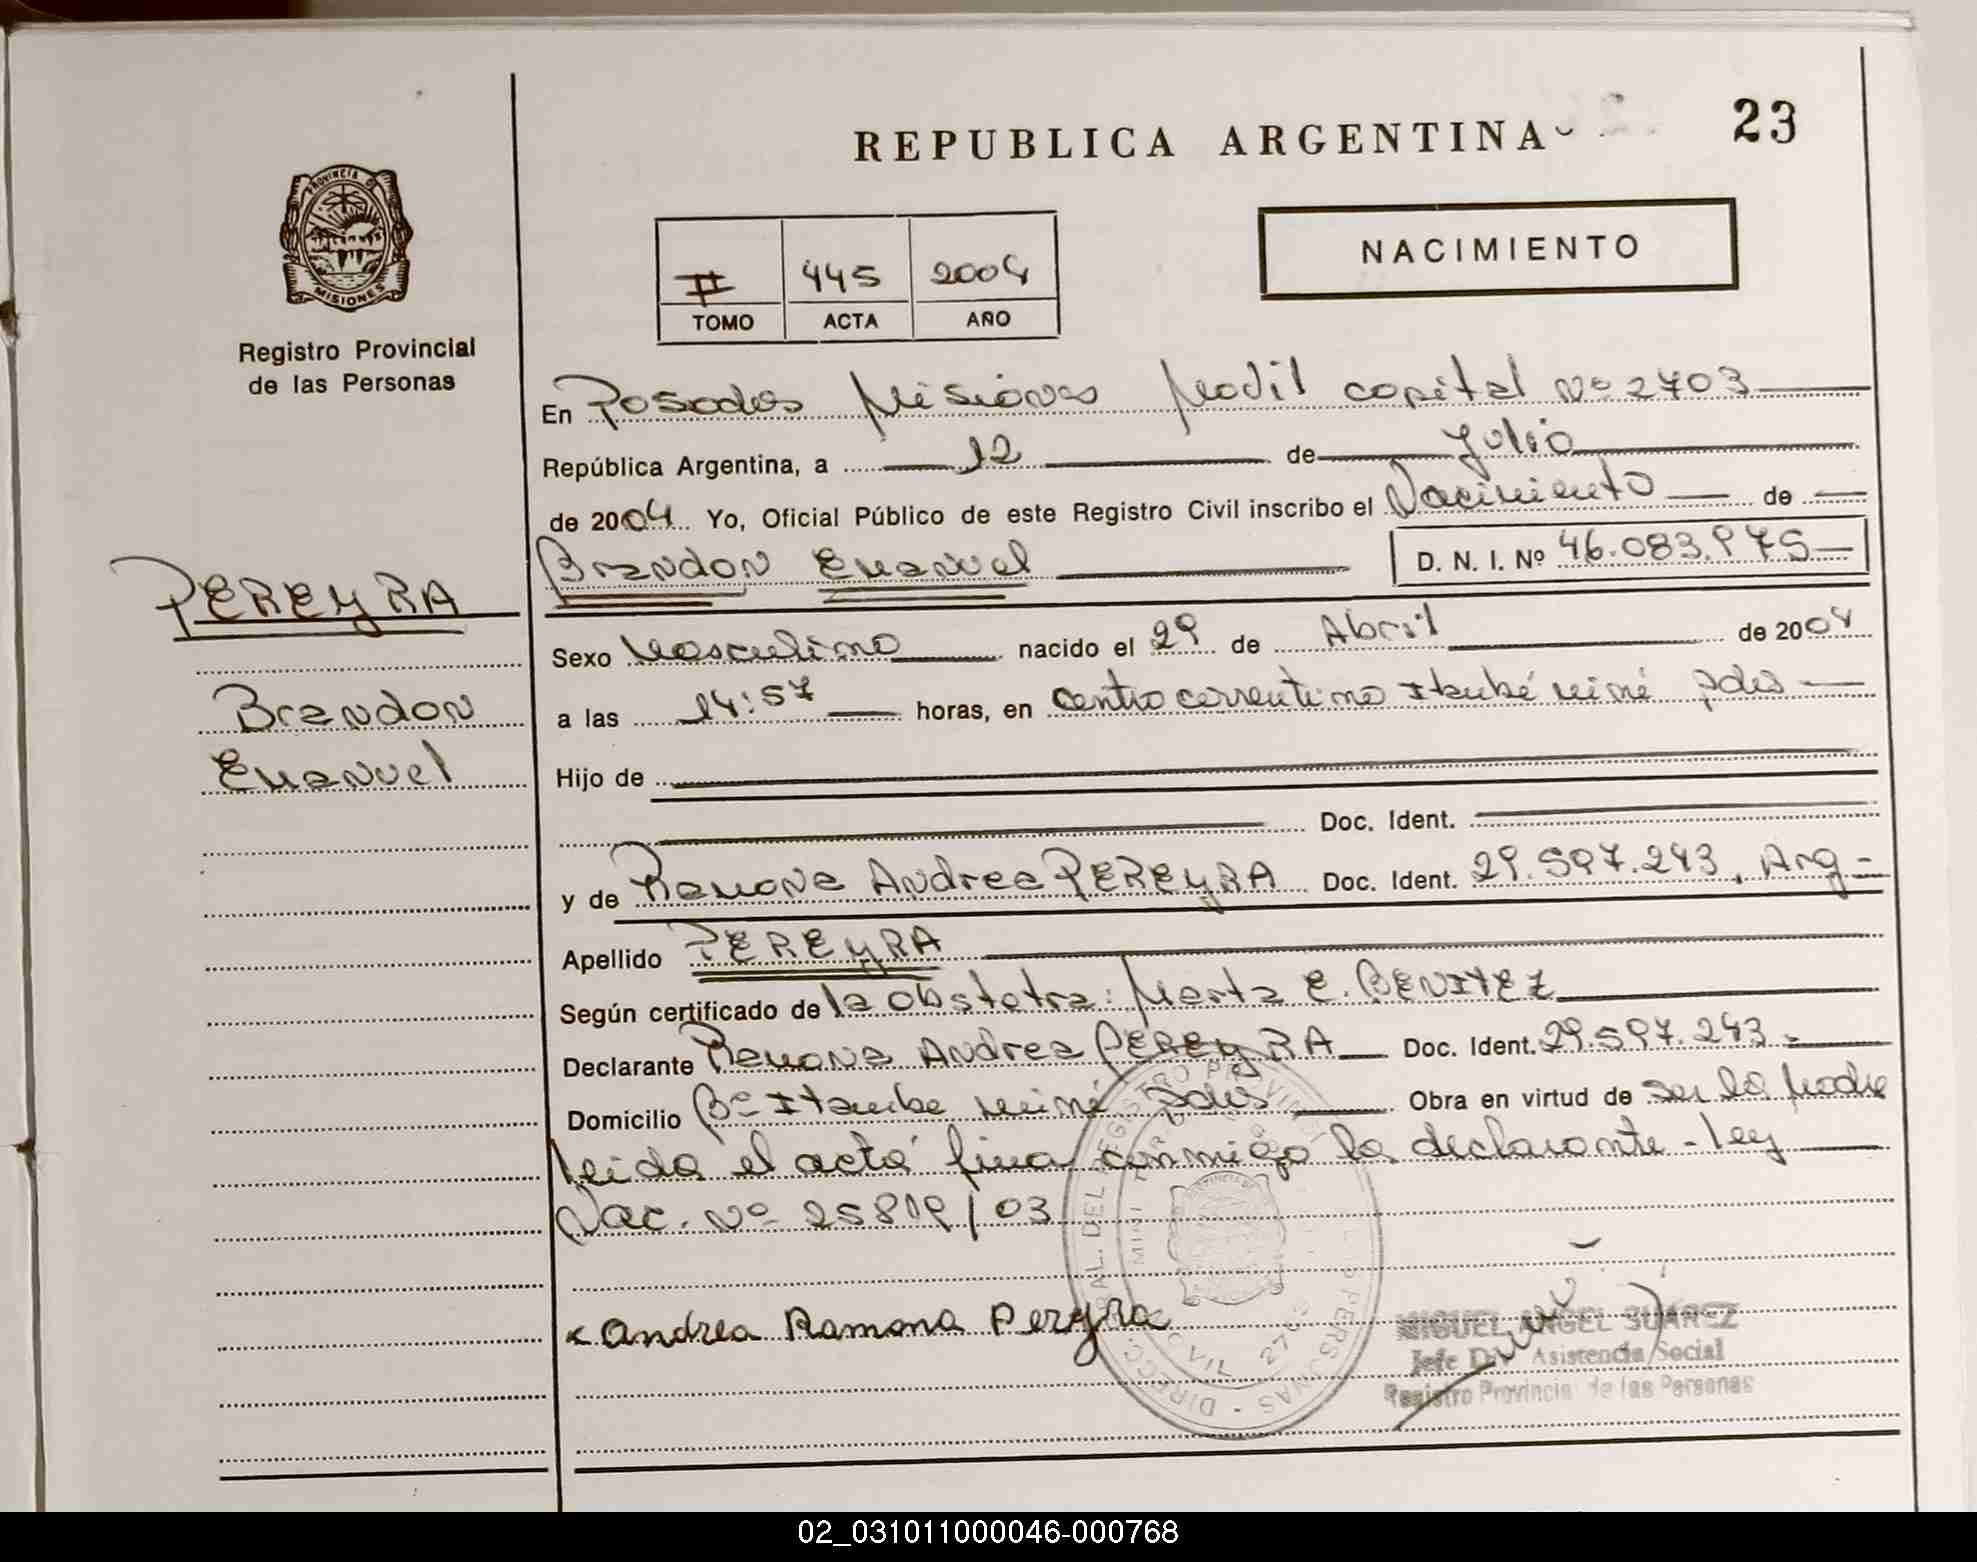 REPUBLICA ARGENTINA
23
PROVINCIA DE
MISIONES
Registro Provincial
de las Personas
II 445 2004
TOMO ACTA AÑO
NACIMIENTO
En Posadas Misiones Movil capital Nº 2703
República Argentina, a 12 de Julio
de 2004 Yo, Oficial Público de este Registro Civil inscribo el Nacimiento de
Brandon Emanuel D. N. I. Nº 46.083.975
PEREYRA
Brandon
Emanuel
Sexo Masculino nacido el 29 de Abril de 2004
a las 14:57 horas, en centro correntino Itaembé miní pdas
Hijo de
Doc. Ident.
y de Ramona Andrea PEREYRA Doc. Ident. 29.597.243, Arg
Apellido PEREYRA
Según certificado de la obstetra: Marta E. BENITEZ
Declarante Ramona Andrea PEREYRA Doc. Ident. 29.597.243
Domicilio Bº Itaembe miní pdas Obra en virtud de ser la Madre
leida el acta firma conmigo la declarante - ley
Nac. Nº 25819/03
Andrea Ramona Pereyra
MIGUEL ANGEL SUAREZ
Jefe Div Asistencia Social
Registro Provincial de las Personas
02_031011000046-000768